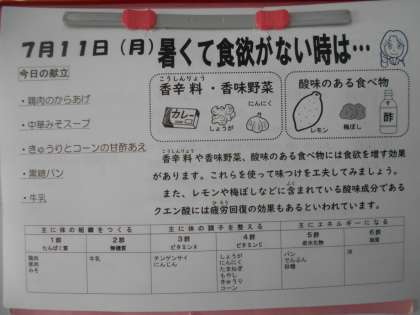 7月11日(月)暑くて食欲がない時は…
今日の献立
・鶏肉のからあげ
・中華みそスープ
・きゅうりとコーンの甘酢あえ
・黒糖パン
・牛乳
こうしんりょう
香辛料・香味野菜
カレー
しょうが
にんにく
酸味のある食べ物
レモン
梅ぼし
酢
こうしんりょう
香辛料や香味野菜、酸味のある食べ物には食欲を増す効果
があります。これらを使って味つけを工夫してみましょう。
また、レモンや梅ぼしなどに含まれている酸味成分である
クエン酸には疲労回復の効果もあるといわれています。
主に体の組織をつくる 主に体の調子を整える 主にエネルギーになる
1群 2群 3群 4群 5群 6群
たんぱく質 無機質 ビタミンA ビタミンC 炭水化物 脂質
鶏肉 牛乳 チンゲンサイ しょうが パン 油
豚肉 にんじん にんにく でんぷん
みそ たまねぎ 砂糖
もやし
きゅうり
コーン